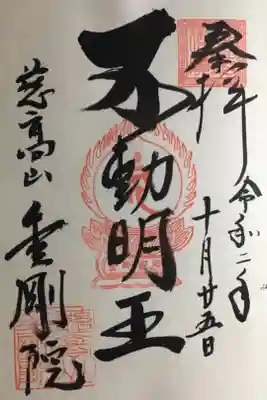 奉拝
令和二年
十月廿五日
不動明王
慈高山
金剛院